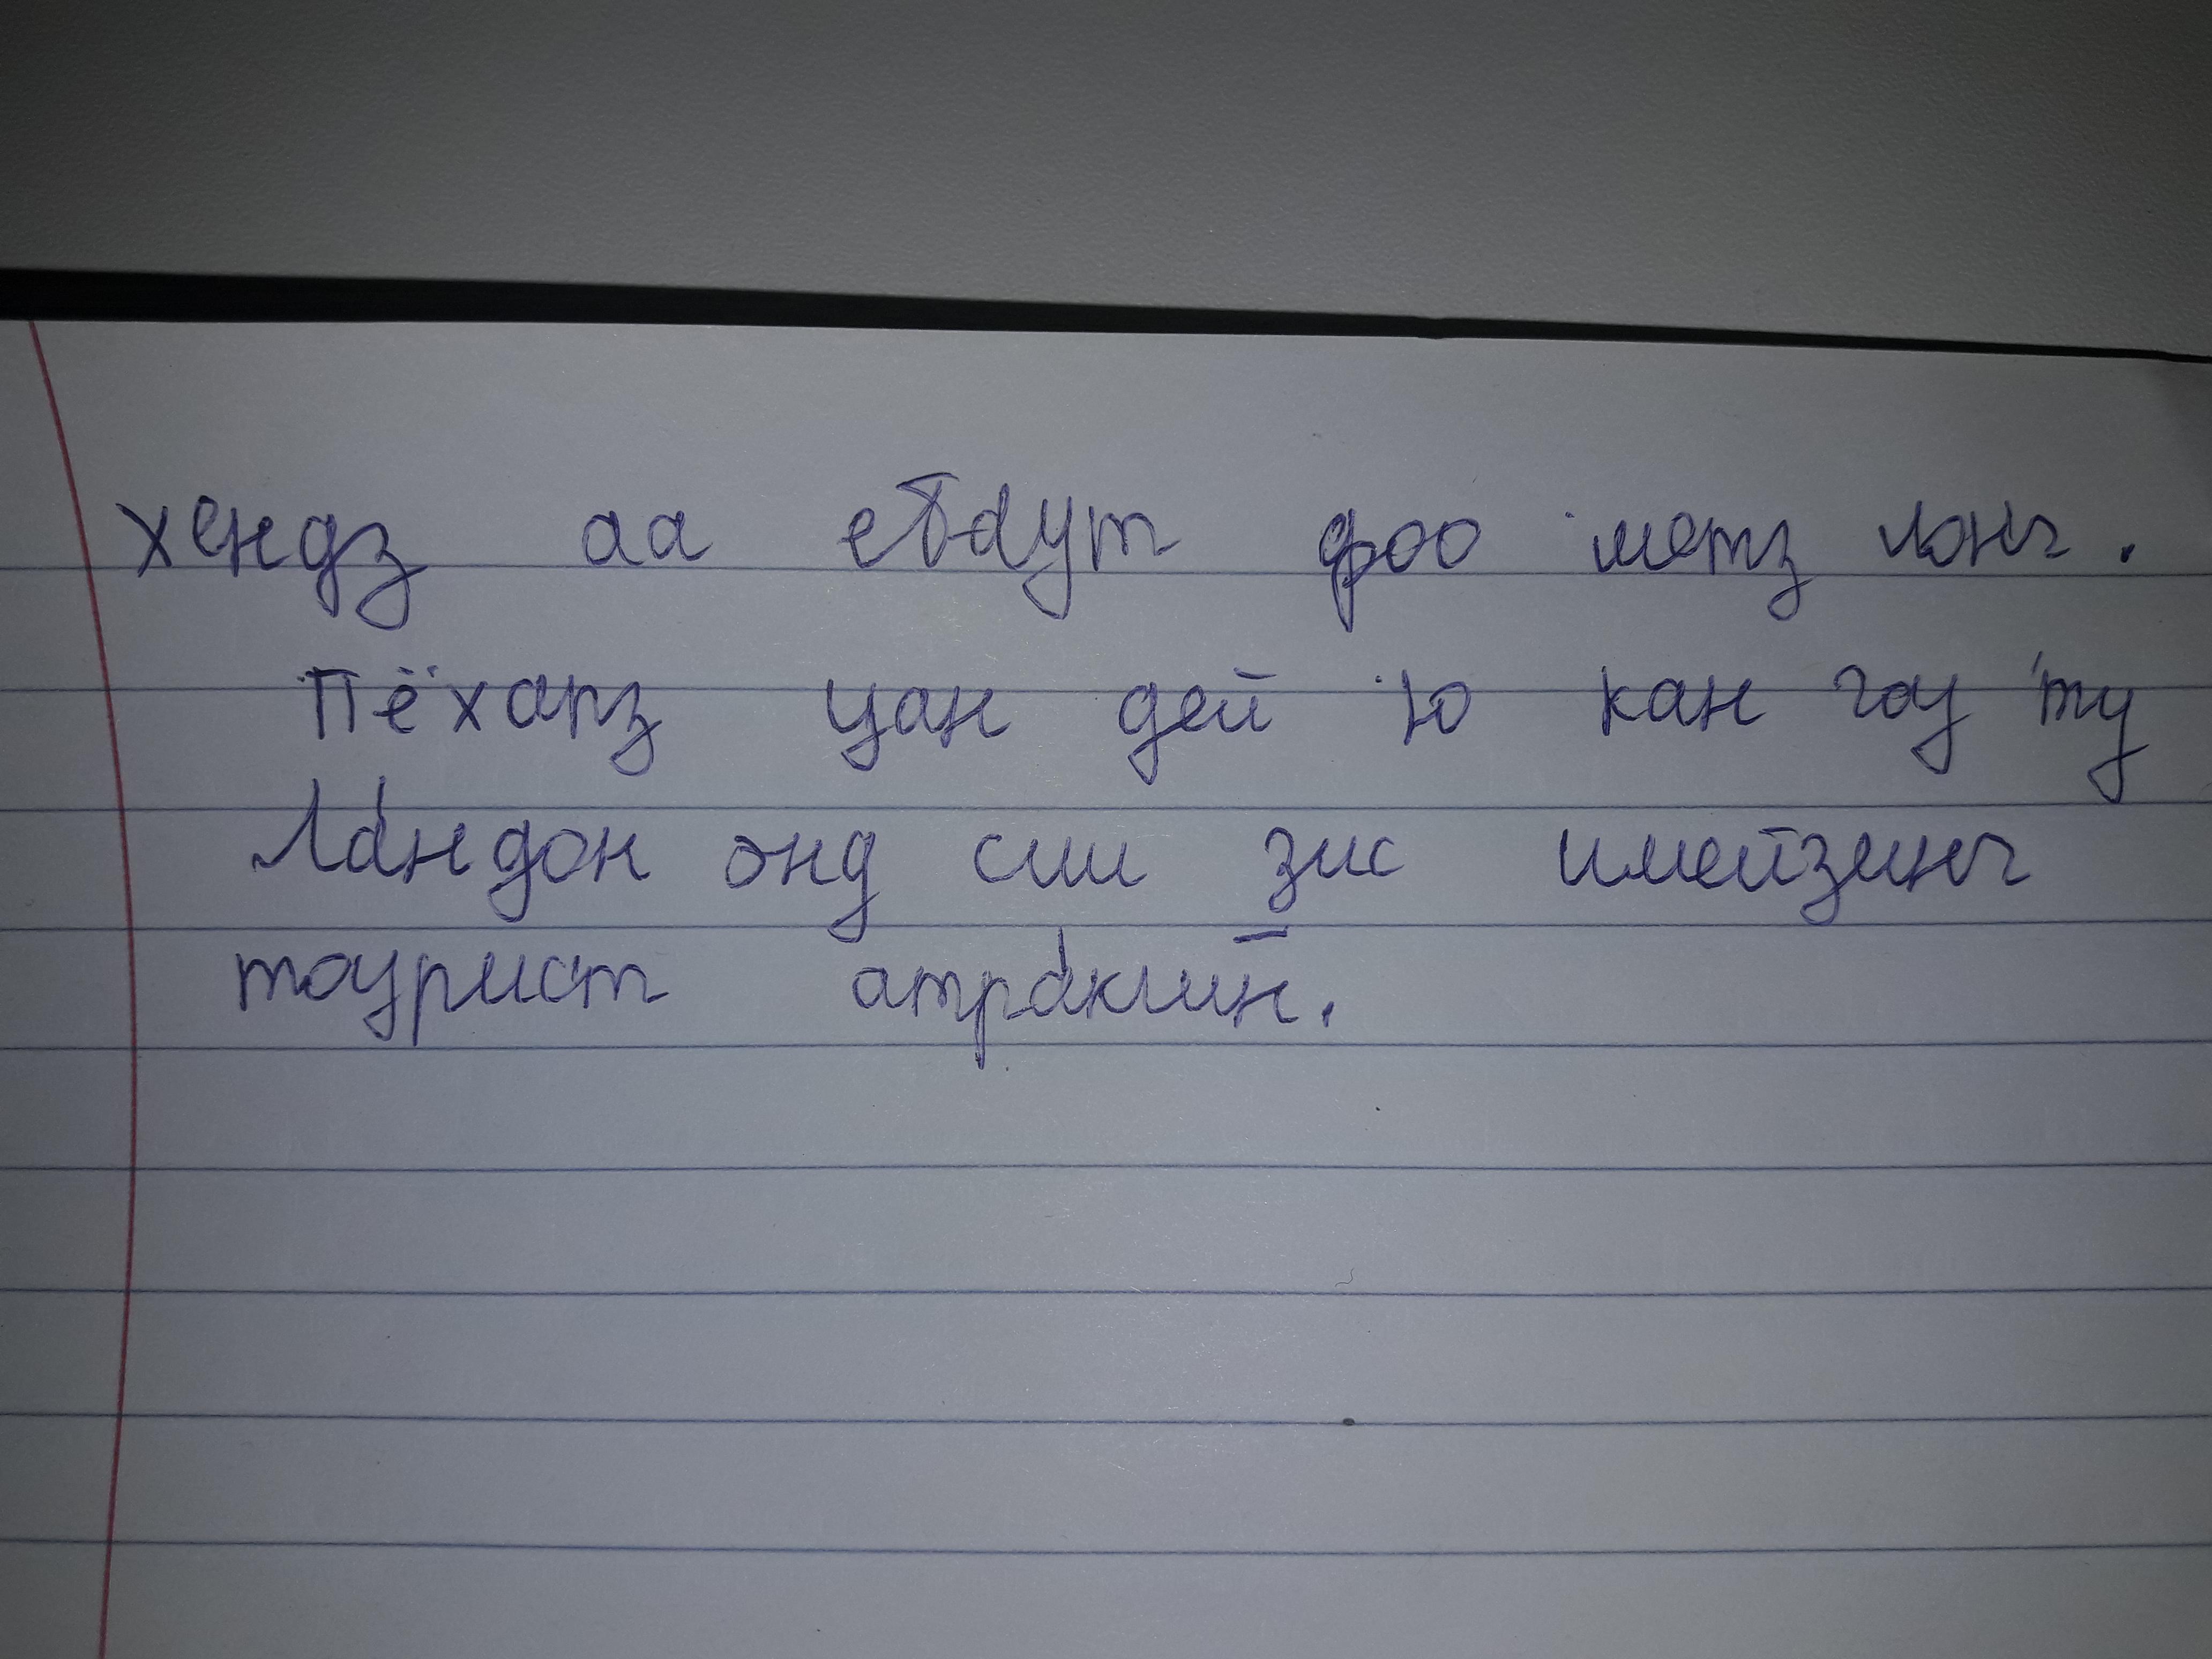 хендз аа ебаут фоо метз лонг.
Пёхапз уан дей ю кан гоу ту
Ландон энд сии зис имейзинг
тоурист атракшин.